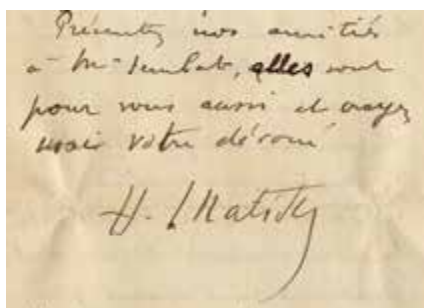 Présentez nos amitiés
à Mr Sembat, elles sont
pour vous aussi et croyez
moi votre dévoué
H. Matisse